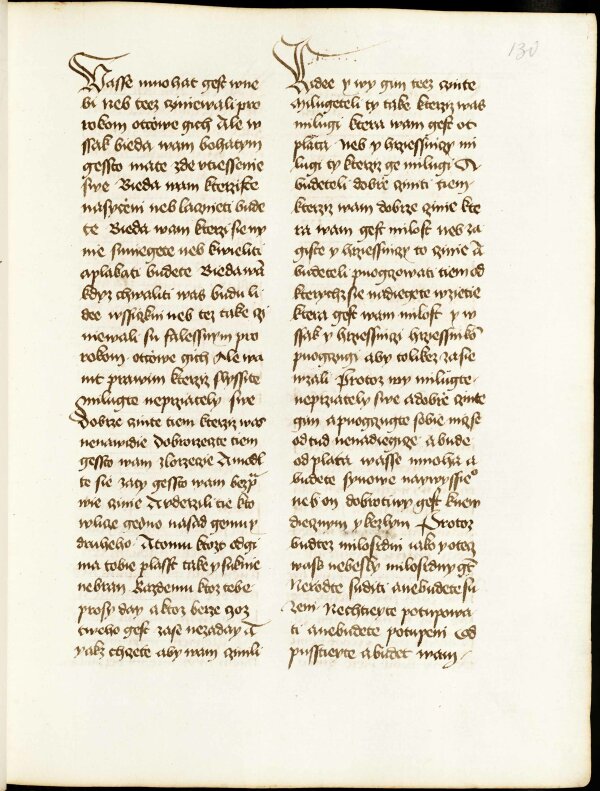 130
Wasse mnohat gest wne
bi neb teez cziniewali pro
rokom ottcowe gich Ale w
ssak bieda wam bohatym
gessto mate zde vtiessenie
swe Bieda wam kterzizste
nasyceni neb laczneti bude
te Bieda wam kterzi se ny
nie smiegete neb kwieliti
a plakati budete Bieda wā
kdyz chwaliti was budu li
dee wssiczkni neb tez take czi
niewali su falessnym pro
rokom ottcowe gich Ale wa
mt prawim kterziz slyssite
milugte neprziately swe
Dobrze czinte tiem kterziz was
nenawidie Dobrorzecte tiem
gessto wam zlorzecie A modl
te sie za ty gessto wam bezp̄
wie czinie A vderzili tie kto
w lice gedno nasad genmu y
druheho A tomu ktozz odgi
ma tobie plasst take y suknie
nebran Kazdemu ktoz tebe
prosy day a ktoz berze czoz
tweho gest zase nezaday A
yakz chcete aby wam czinili
Lidee y wy gim teez czinte
A milugeteli ty take kterziz was
milugi ktera wam gest ot
plata neb y hrziessniczy mi
lugi ty kterziz ge milugi A
budeteli dobrze cziniti tiem
kterziz wam dobrze czinie kte
ra wam gest milost neb za
giste y hrziessniczy to czinie A
budeteli puogczowati tiem od
kterychz sie nadiegete wzieti
ktera gest wam milost y w
ssak y hrziessniczi hrziessnikō
puogczugi aby tolikez zasie
wzali Protoz wy milugte
neprziately swe a dobrze czinte
gim a puogczugte sobie nicze
odtud nenadiegicze a bude
odplata wasse mnoha a
budete synowe naywyssieº
neb on dobrotiwy gest k new
diecznym y ke zlym Protoz
budtez milosrdni iako y otecz
wass nebesky milosrdny gt̄
Nerodte suditi a nebudete su
zeni Nechtieyte potupowa
ti a nebudete potupeni Od
pusstieyte a budet wam